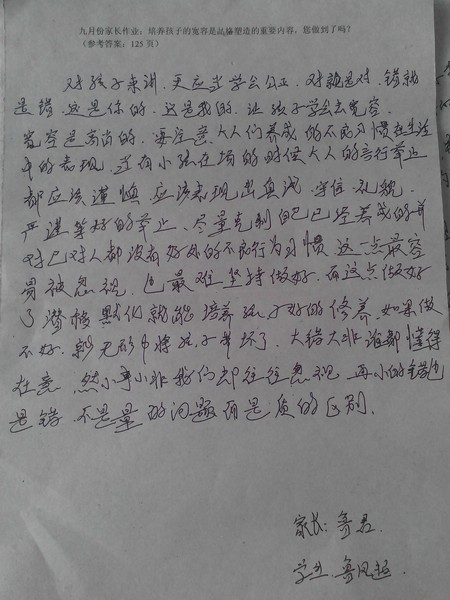 九月份家长作业：培养孩子的宽容是品格塑造的重要内容，您做到了吗？
（参考答案：125页）
对孩子来讲，更应当学会公正，对就是对，错就
是错，这是你的，这是我的，让孩子学会去宽容。
宽容是高尚的，要注意，大人们养成的不良习惯在生活
中的表现，并有小孩在场的时候大人的言行举止
都应该谨慎，应该表现出真诚、守信、礼貌、
严谨等好的举止，尽量克制自己已经养成的并
对己对人都没有好处的不良行为习惯，这一点最容
易被忽视，也最难坚持做好，而这点做好
了潜移默化就能培养孩子好的修养，如果做
不好，就无形中将孩子带坏了，大错大非谁都懂得
在意，然小事小非我们却往往忽视，再小的错也
是错，不是量的问题而是质的区别。
家长：
学生：